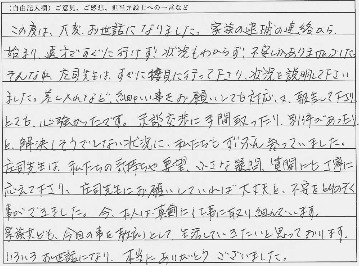 (自由記入欄) ご意見、ご感想、担当弁護士への一言など
この度は、大変お世話になりました。家族の逮捕の連絡から
始まり、遠方ですぐに行けず、状況もわからず、不安しかありませんでした。
そんな中、庄司先生は、すぐに接見に行って下さり、状況を説明して下さい
ました。差し入れなど、細かい事をお願いしても対応し、報告して下さり
とても、心強かったです。示談交渉に手間取ったり、別件があったり
と、解決しそうでない状況に、私たちもずいぶん参っていました。
庄司先生は、私たちの気持ちや要望、小さな疑問、質問にも丁寧に
応えて下さり、庄司先生にお願いしていれば大丈夫と、不安を取りのぞく
事ができました。今、本人は真剣にして事に取り組んでいます。
家族ともども、今回の事を教訓として生活していきたいと思っております。
いろいろお世話になり、本当にありがとうございました。